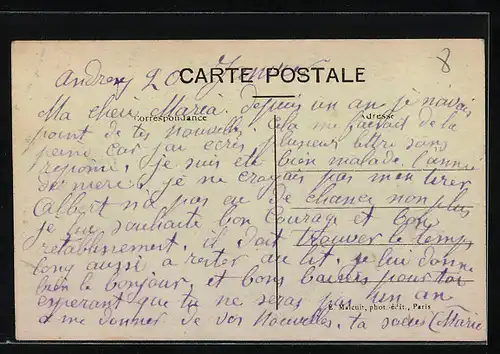 8
Andrezy 20 Janvier
CARTE POSTALE
Ma cher Maria. depuis un an je navais
Correspondance
Adresse
point de tes nouvelles. Cela me faisait de la
peine car jai ecris plusieur lettre sans
reponse, je suis été bien malade l'année
derniere, je ne croyais pas men tirer
Albert na pas eu de chance non plus
je lui souhaite bon Courage et bons
retablissement, il doit trouver le temps
long aussi a rester au lit. je lui donne
bien le bonjour, et bons baisés pour toi
esperant que tu ne seras pas un an
E. Malcuit, phot.-édit., Paris
a me donner de vos Nouvelles, ta soeur Marie